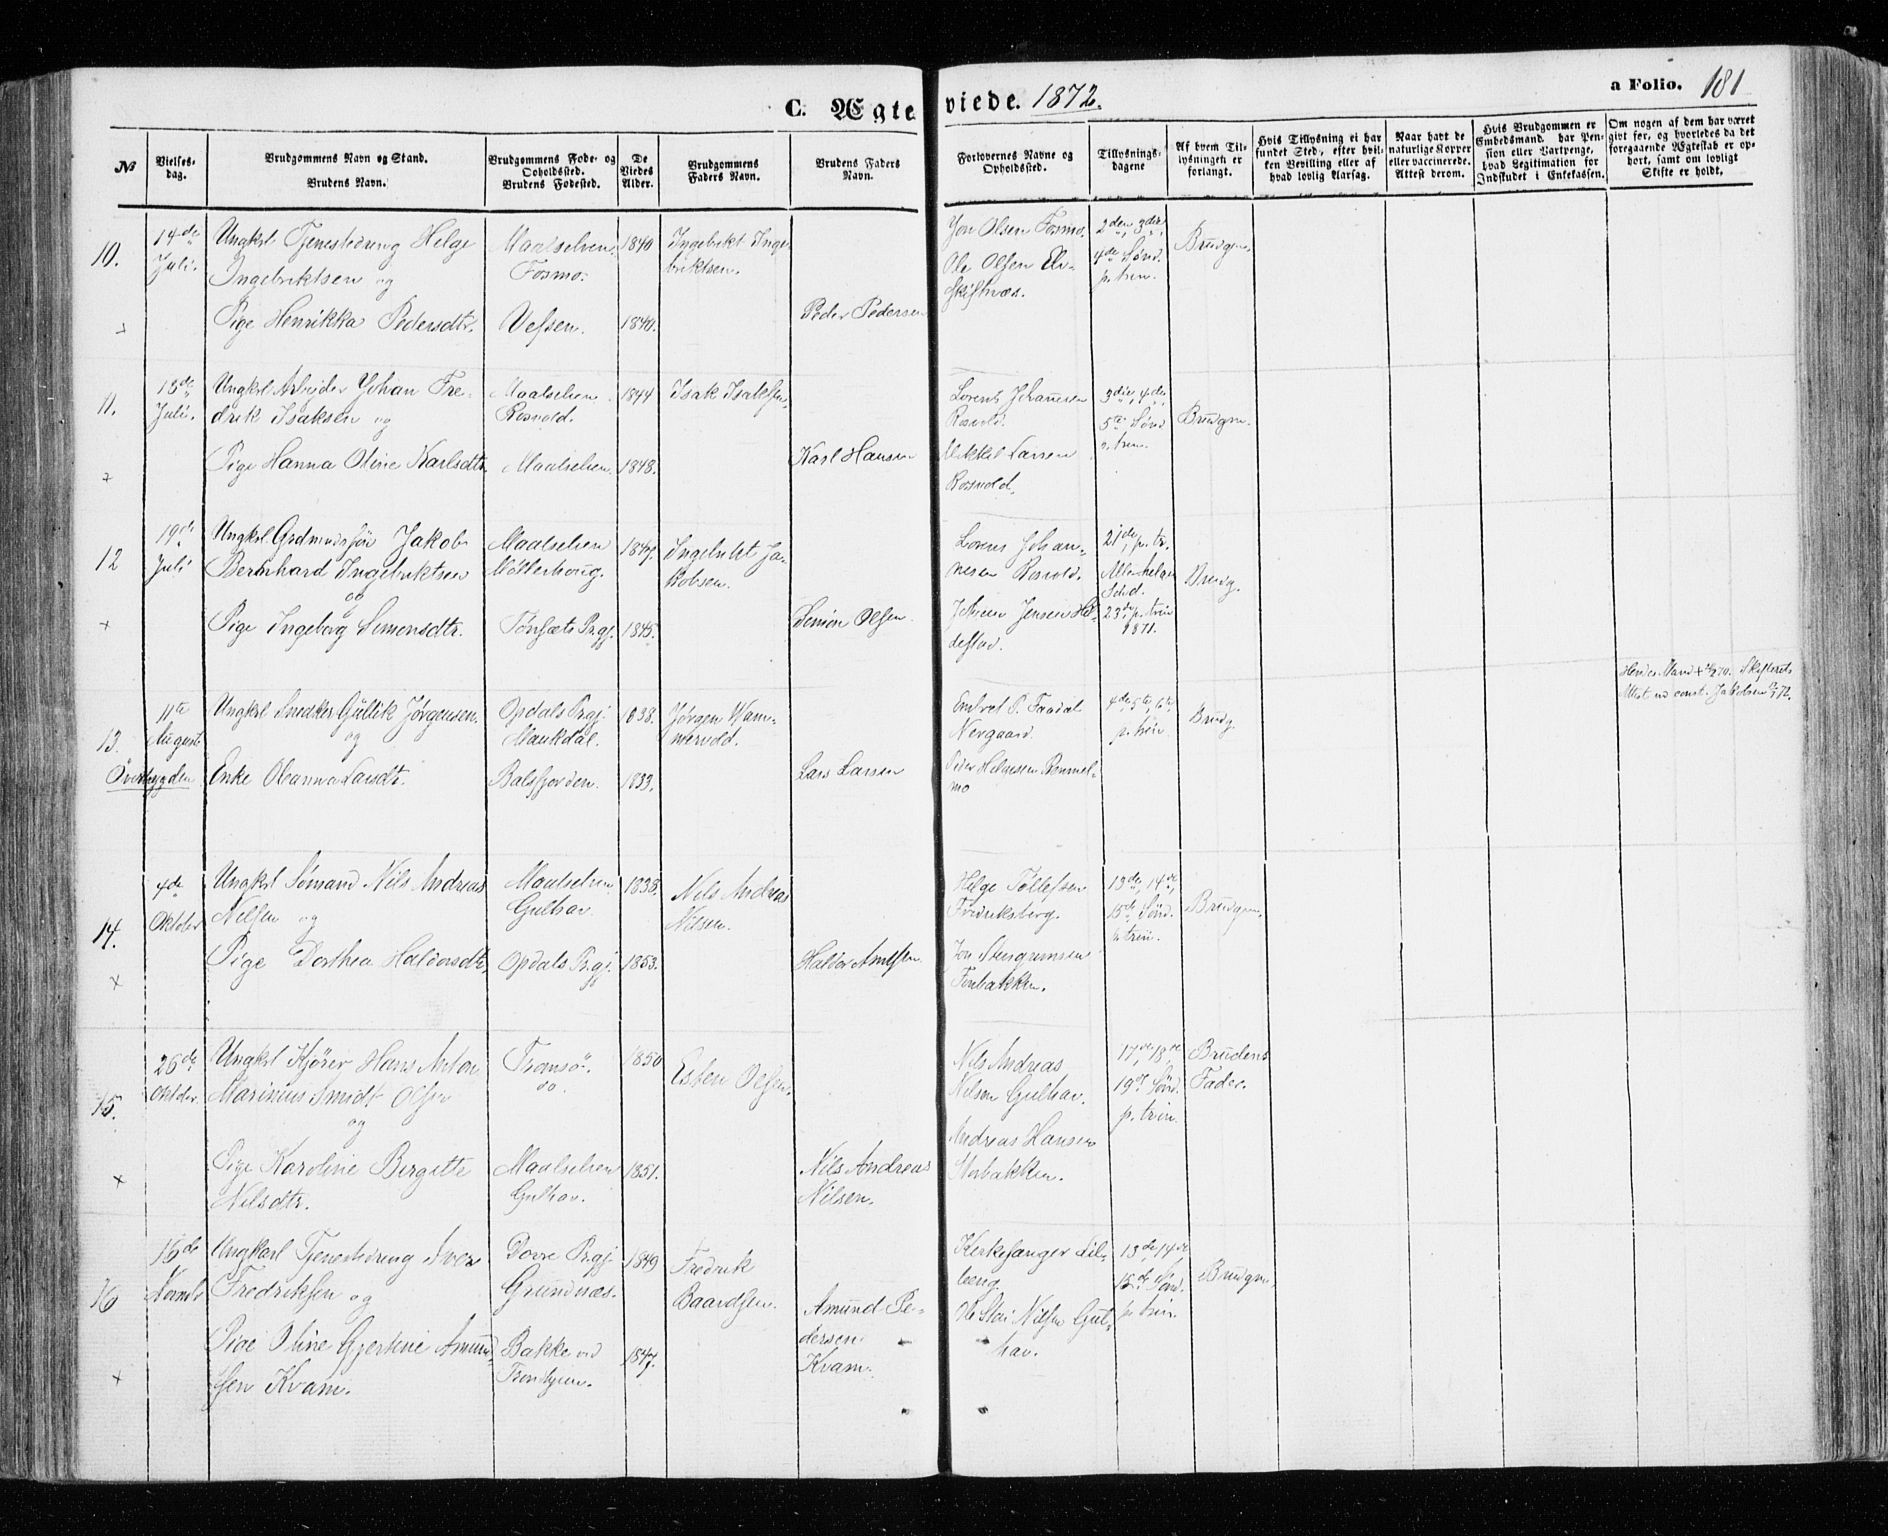 C. Ægteviede. 1872.
a Folio. 181
No
Vielses-
dag.
Brudgommens Navn og Stand.
Brudens Navn.
Brudgommens Føde- og
Opholdssted.
Brudens Fødested.
De
Viedes
Alder.
Brudgommens
Faders Navn.
Brudens Faders
Navn.
Forlovernes Navne og
Opholdssted.
Tillysnings-
dagene
Af hvem Til-
lysningen er
forlangt.
Hvis Tillysning ei har
fundet Sted, efter hvil-
ken Bevilling eller af
hvad lovlig Aarsag.
Naar havt de
naturlige Kopper
eller vaccinerede.
Attest derom.
Hvis Brudgommen er
Embedsmand, har Pen-
sion eller Vartpenge,
hvad Legitimation for
Indskudet i Enkekassen.
Om nogen af dem har været
gift før, og hvorledes da det
foregaaende Ægteskab er op-
hørt, samt om lovligt
Skifte er holdt.
10.
14de
Juli.
Ungkrl Tjenestedreng Helge
Ingebriktsen og
Pige Henrikka Pedersdtr.
Maalselven
Fosmo.
Vefsen.
1840
1840.
Ingebrikt Inge-
briktsen.
Peder Pedersen
Jon Olsen Fosmo.
Ole Olsen El-
skiftnæs.
2den, 3die,
4de Sønd.
p. trin.
Brudgm.
11.
13de
Juli.
Ungkrl Arbejder Johan Fre-
drik Isaksen og
Pige Hanna Oline Karlsdtr.
Maalselven
Rosvold.
Maalselven.
1844
1848.
Isak Isaksen,
Karl Hansen
Lorents Johannesen
Rosvold.
Mikkel Larsen
Rossvold.
3die, 4de,
5te Sønd
p. trin.
Brudgm.
12
19de
Juli
Ungkrl. Grdmandssøn Jakob
Bernhard Ingebriktsen
og
Pige Ingeborg Simonsdtr.
Maalselven
Møllerhoug.
Tønsæts Prgj.
1847.
1845.
Ingebrikt Ja-
kobsen.
Simon Olsen.
Lorens Johan-
nesen Rosvold.
Johan Jensen
21de, p. tr.
Allehelgen
23de p. trin
1871.
Brudg.
13.
11te
August
Øverbygden
Ungkrl Snedker Gullik Jørgensen.
og
Enke Oleanna Larsdtr.
Opdals Prgj.
Maukdal.
Balsfjorden.
1838.
1833.
Jørgen Wam-
mervold.
Lars Larsen
Embret P. Faadal
Nergaard.
Peder Helgesen Rommel-
mo
4de, 5te, 6te,
p. trin.
Brudg.
Hendes Mand + 70. Skifterets
Attest ved const. Jakobsen 72.
14.
4de
Oktober
Ungkrl Sømand Nils Andreas
Nilsen og
Pige Dorthea Haldorsdtr.
Maalselven
Gulhav.
Opdals Prgj.
1838.
1853.
Nils Andreas
Nilsen.
Haldor Arntsen.
Helge Tollefsen
Fredriksberg.
Jon Stengrimsen
Fonbakken.
13de, 14de,
15de Sønd.
p. trin.
Brudgm.
15.
26de
Oktober.
Ungkrl Kjører Hans Anton
Marinius Smidt Olsen
og
Pige Karoline Birgitte
Nilsdtr.
Tromsø.
Maalselven
Gulhav.
1850
1851.
Esten Olsen.
Nils Andreas
Nilsen.
Nils Andreas
Nilsen Gulhav.
Andreas Hansen
Storbakken.
17de 18de
19de Sønd.
p. trin.
Brudens
Fader.
16
16de
Novmbr
Ungkarl Tjenestedreng Iver
Fredriksen og
Pige Oline Gjertine Amund-
sen Kvam.
Dovre Prgj.
Grundnæs.
Bakke ved
Trondhjem.
1849
1847.
Fredrik
Baardsen.
Amund Pe-
dersen
Kvam.
Kirkesanger Lil-
leeng
Nilsen Gul-
hav.
13de 14de
15de Sønd.
p. trin.
Brudgm.